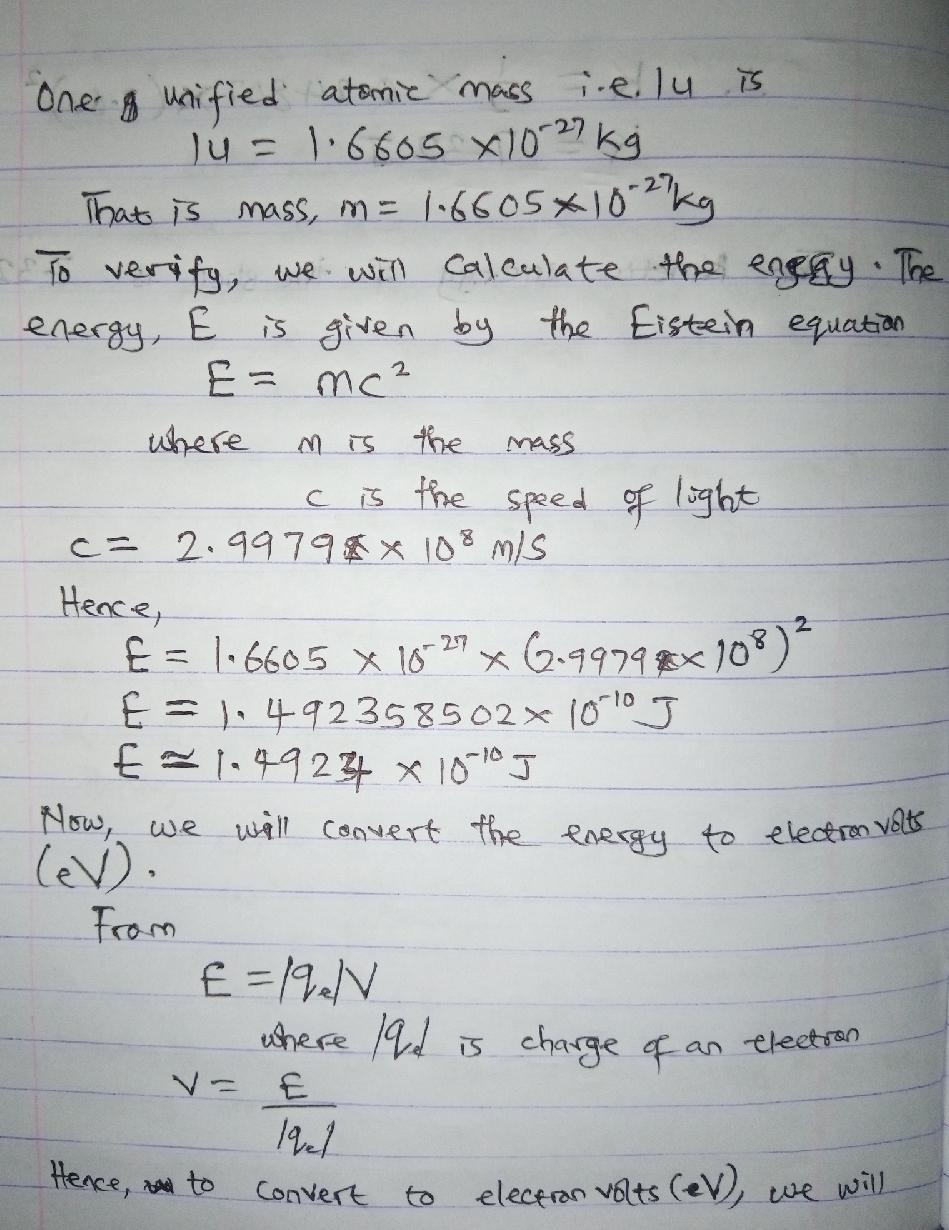 One unified atomic mass i.e. 1u is
1u = 1.6605 ×10⁻²⁷ kg
That is mass, m = 1.6605×10⁻²⁷kg
To verify, we will calculate the energy. The
energy, E is given by the Eistein equation
E = mc²
where m is the mass
c is the speed of light
c = 2.9979 × 10⁸ m/s
Hence,
E = 1.6605 × 10⁻²⁷ × (2.9979 × 10⁸)²
E = 1.492358502 × 10⁻¹⁰ J
E ≃ 1.4924 × 10⁻¹⁰ J
Now, we will convert the energy to electron volts
(eV).
From
E = |qₑ|V
where |qₑ| is charge of an electron
V = E
|qₑ|
Hence, to convert to electron volts (eV), we will